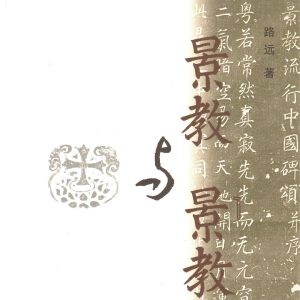 路远 著
景教
与
景教
景教流行中國碑頌并序
粵若常然真寂先先而无元
二氣暗空易而天地開日